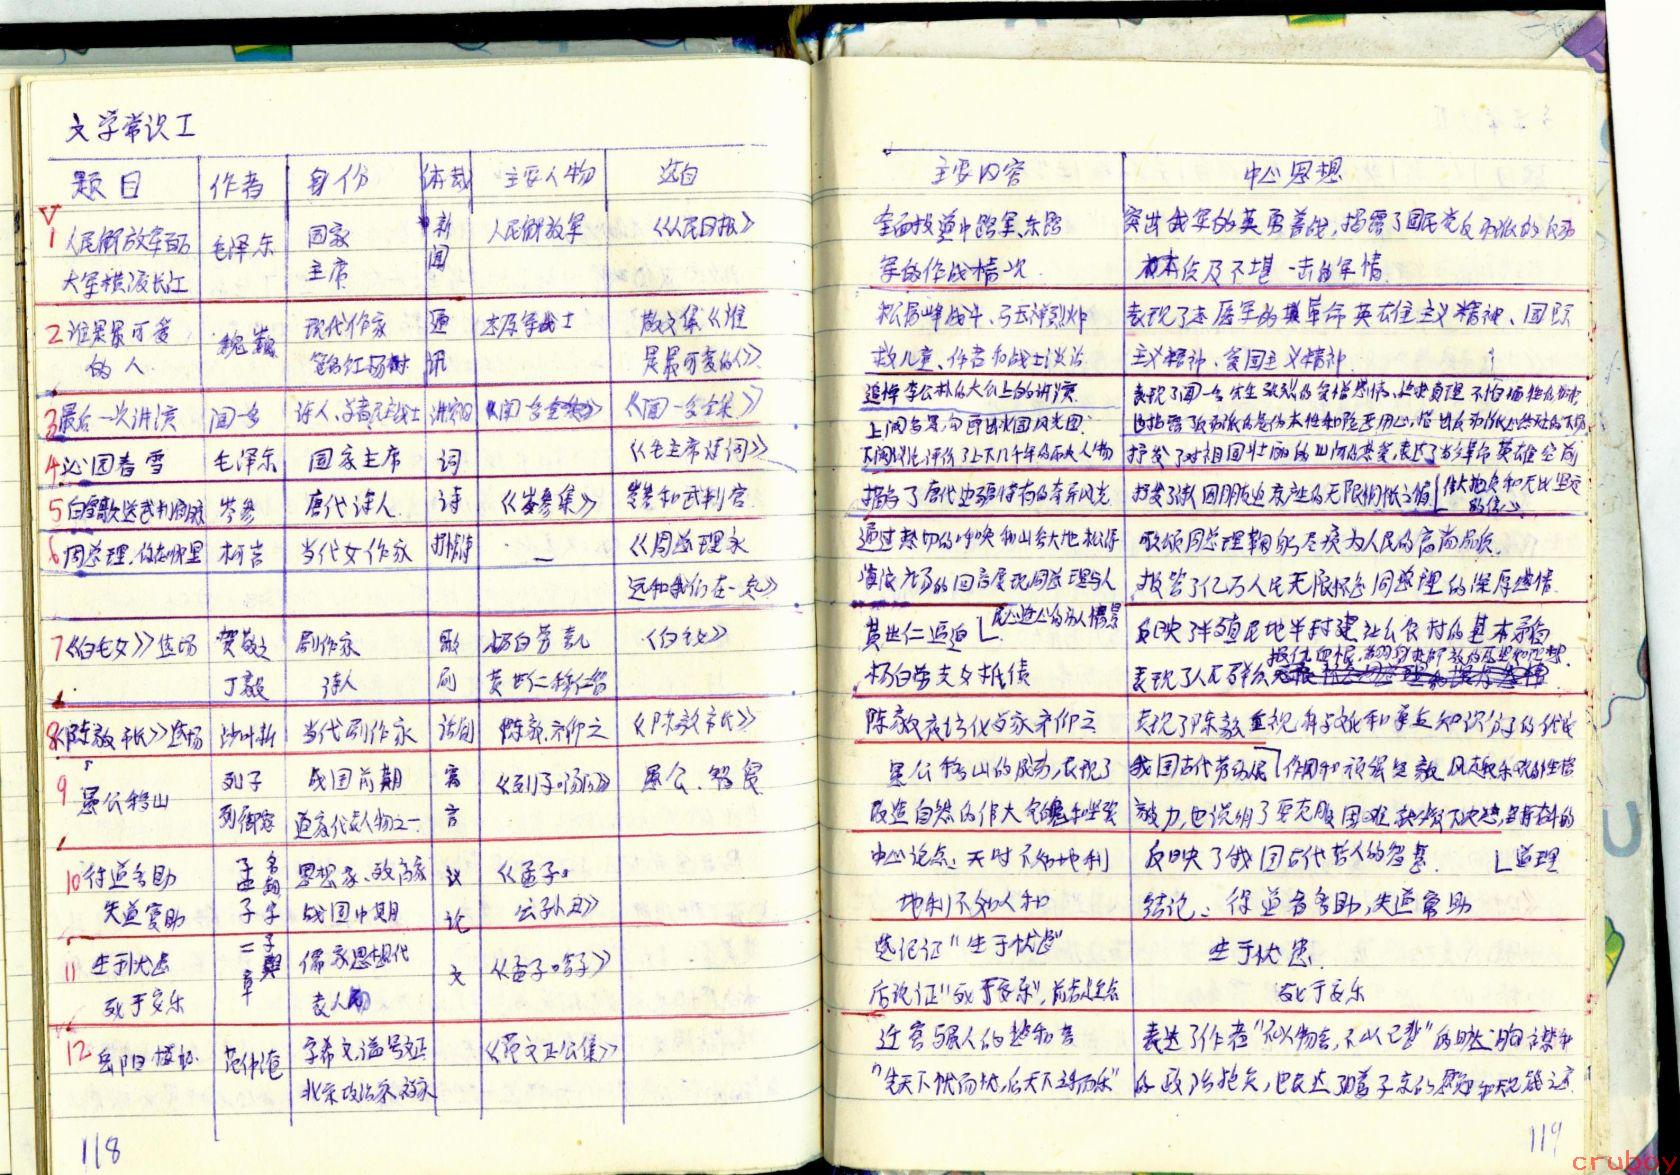 文学常识 I
题目 作者 身份 体裁 主要人物 选自
1 人民解放军百万 毛泽东 国家 新 人民解放军 《人民日报》
大军横渡长江 主席 闻
2 谁是最可爱 魏巍 现代作家 通 志愿军战士 散文集《谁
的人 笔名红杨树 讯 是最可爱的人》
3 最后一次讲演 闻一多 诗人、学者 战士 讲演词 《闻一多全集》 《闻一多全集》
4 沁园春 雪 毛泽东 国家主席 词 《毛主席诗词》
5 白雪歌送武判官归 岑参 唐代诗人 诗 《岑参集》 岑参和武判官
6 周总理,你在哪里 柯岩 当代女作家 抒情诗 — 《周总理永
远和我们在一起》
7 《白毛女》选场 贺敬之 剧作家 歌 杨白劳 喜儿 《白毛女》
丁毅 诗人 剧 黄世仁 穆仁智
8 《陈毅市长》选场 沙叶新 当代剧作家 话剧 陈毅、齐仰之 《陈毅市长》
9 愚公移山 列子 战国前期 寓 《列子·汤问》 愚公、智叟
列御寇 道家代表人物之一 言
10 得道多助 孟子 名轲 字子舆 思想家、政治家 议 《孟子·
失道寡助 战国中期 论 公孙丑》
11 生于忧患 二章 儒家思想代 文 《孟子·告子》
死于安乐 表人物
12 岳阳楼记 范仲淹 字希文,谥号文正 《范文正公集》
北宋政治家、文学家
118
主要内容 中心思想
全面报道中路军、东路 突出我军的英勇善战,揭露了国民党反动派的
军的作战情况 及不堪一击的军情
松骨峰战斗、马玉祥烈火中 表现了志愿军的革命英雄主义精神、国际
救儿童、作者和战士谈话 主义精神、爱国主义精神
追悼李公朴的大会上的讲演 表现了闻一多先生强烈的爱憎感情、
上阕写景,勾画出北国风光图;
下阕议论,评价了上下几千年的历史人物 抒发了对祖国壮丽的山河的热爱,表达了
描写了唐代边疆特有的奇异风光 抒发了诗人因朋友返京产生的无限惆怅之情
通过热切的呼唤和山谷大地松涛 歌颂周总理鞠躬尽瘁为人民的高尚品质,
的回音展现周总理与人 抒发了亿万人民无限怀念周总理的深厚感情
民心连心的动人情景
黄世仁逼迫 反映了半殖民地半封建社会农村的基本矛盾
杨白劳卖女抵债 表现了人民群众 报仇雪恨,
陈毅夜访化学家齐仰之 表现了陈毅重视科学文化和尊重知识分子的
愚公移山的故事,表现了 我国古代劳动人民
改造自然的伟大气魄和坚强 毅力,也说明了要克服困难
中心论点:天时不如地利 反映了我国古代哲人的智慧
地利不如人和 结论:得道者多助,失道寡助
先论证“生于忧患” 生于忧患
后论证“死于安乐”, 死于安乐
迁客骚人的悲和喜 表达了作者“不以物喜,不以己悲”的旷达胸襟和
“先天下忧而忧,后天下乐而乐” 的政治抱负,也表达了对滕子京的
119
cruboy